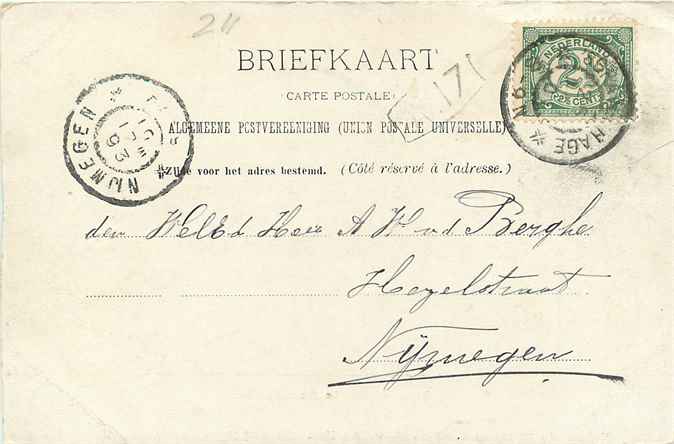 24
BRIEFKAART
(CARTE POSTALE)
ALGEMEENE POSTVEREENIGING (UNION POSTALE UNIVERSELLE)
Zijde voor het adres bestemd. (Côté réservé à l'adresse.)
NEDERLAND
2½
CENT
HAGE
NIJMEGEN
den WelEd Heer A W v d Berghe
Hezelstraat
Nijmegen